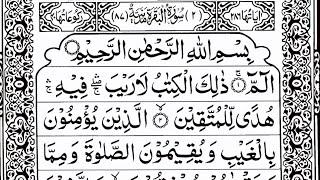 اٰیَاتُهَا ۲۸۶ (۲) سُوْرَةُ الْبَقَرَةِ مَدَنِیَّةٌ (۸۷) رُكُوْعَاتُهَا
بِسْمِ اللّٰهِ الرَّحْمٰنِ الرَّحِیْمِ
الٓمّٓ ۚ﴿۱﴾ ذٰلِكَ الْكِتٰبُ لَا رَیْبَ ۛۚ فِیْهِ ۛۚ
هُدًی لِّلْمُتَّقِیْنَ ﴿۲﴾ الَّذِیْنَ یُؤْمِنُوْنَ
بِالْغَیْبِ وَ یُقِیْمُوْنَ الصَّلٰوةَ وَ مِمَّا